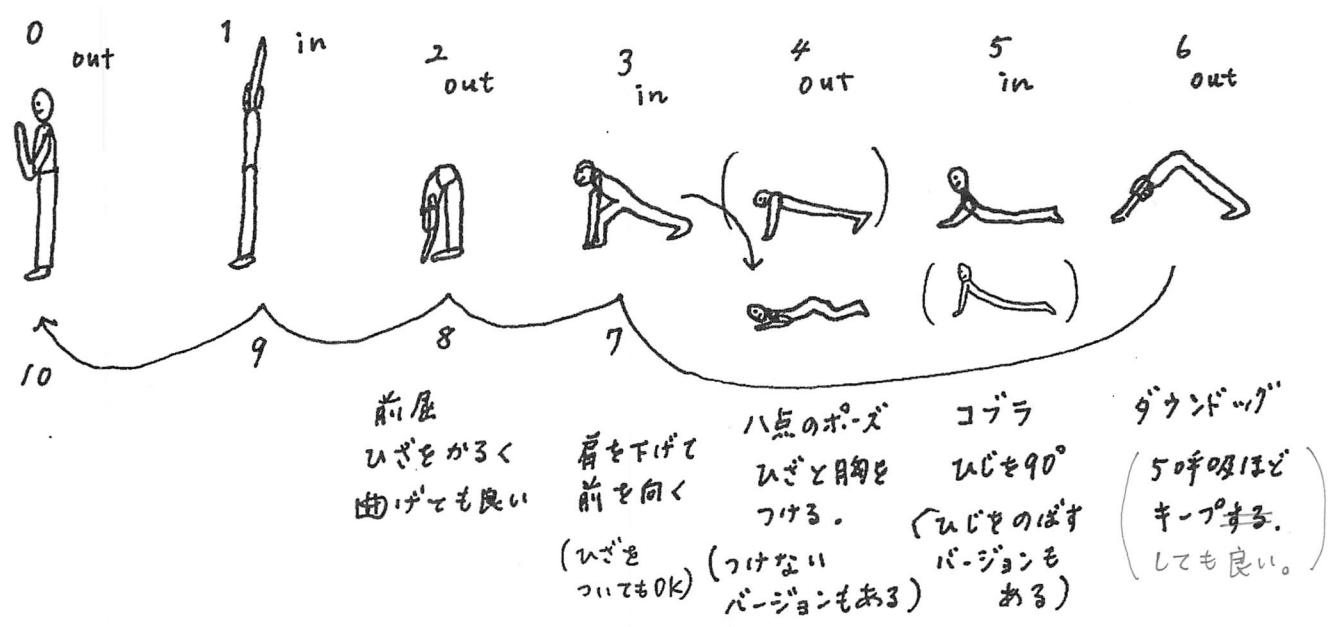 0
out
1
in
2
out
3
in
4
out
5
in
6
out
10
9
8
7
前屈
ひざをかるく
曲げても良い
肩を下げて
前を向く
(ひざを
ついてもOK)
八点のポーズ
ひざと胸を
つける。
(つけない
バージョンもある)
コブラ
ひじを90°
(ひじをのばす
バージョンも
ある)
ダウンドッグ
(5呼吸ほど
キープする.
しても良い。)